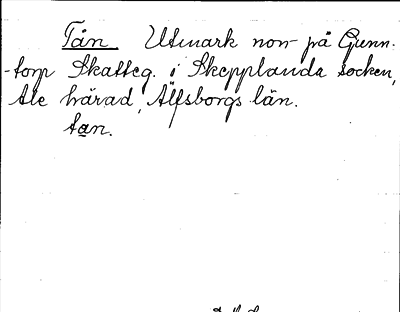 Tån Utmark norr på Gunn-
-torp Skatteg. i Skepplanda socken,
Ale härad, Älfsborgs län.
tan.